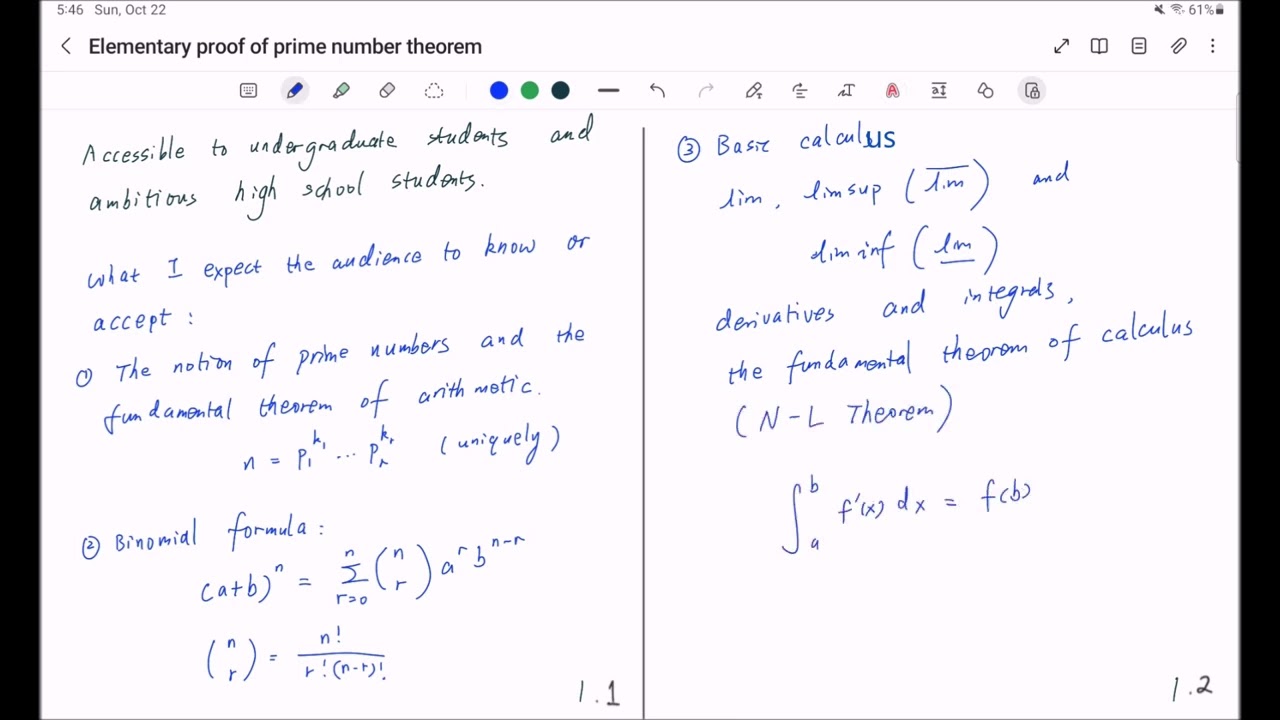 5:46 Sun, Oct 22
61%
Elementary proof of prime number theorem
Accessible to undergraduate students and
ambitious high school students.
What I expect the audience to know or
accept :
① The notion of prime numbers and the
fundamental theorem of arithmetic.
n = p₁^{k₁} ... p_r^{k_r} (uniquely)
② Binomial formula :
(a+b)^n = ∑_{r=0}^{n} (n r) a^r b^{n-r}
(n r) = n! / r!(n-r)!
1.1
③ Basic calculus
lim, limsup (l̅i̅m̅) and
liminf (l̲i̲m̲)
derivatives and integrals,
the fundamental theorem of calculus
(N-L Theorem)
∫_a^b f'(x) dx = f(b)
1.2